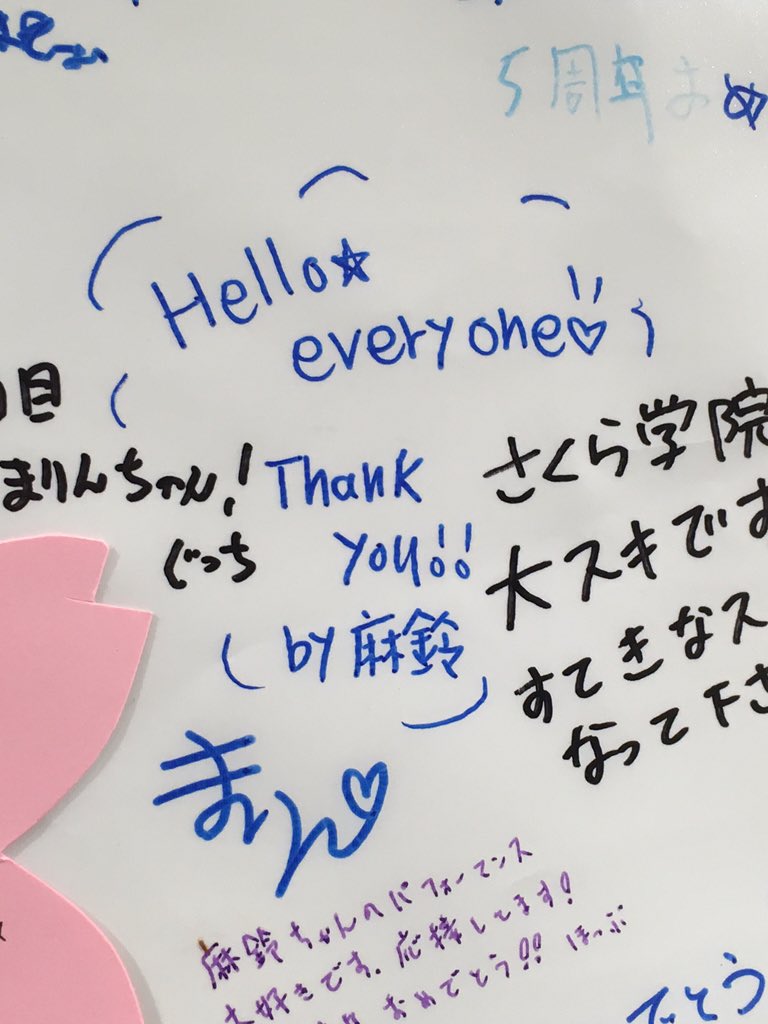 5周年まめ
Hello☆
everyone♡
目
まりんちゃん!
ぐっち
Thank
you!!
by 麻鈴
さくら学院
大スキです
すてきなス
なって下さ
まりん♡
麻鈴ちゃんのパフォーマンス
大好きです。応援してます!
おめでとう!! ほっぷ
でとう